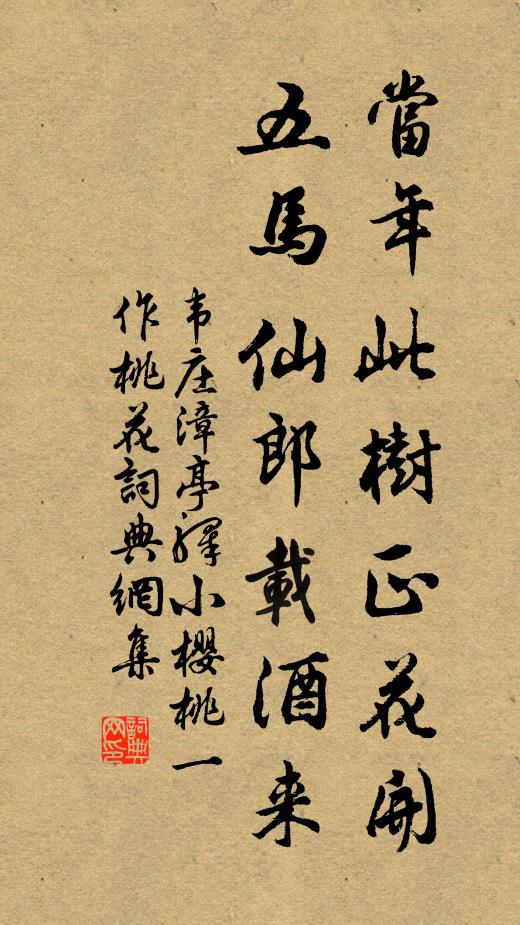 當年此樹正花開
五馬仙郎載酒来
韦庄漳亭驛小櫻桃一
作桃花詞典網集
詞典网印